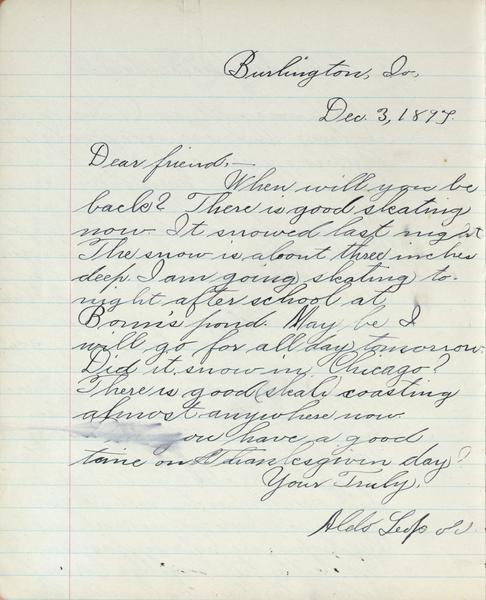 Burlington, Io,
Dec. 3, 1897.
Dear friend,—
When will you be
back? There is good skating
now. It snowed last night
The snow is about three inches
deep. I am going skating to-
night after school at
Bonn's pond. May be I
will go for all day tomorrow.
Did it snow in Chicago?
There is good (skati) coasting
almost anywhere now.
you have a good
time on Thanksgivin day?
Your Truly,
Aldo Leopold